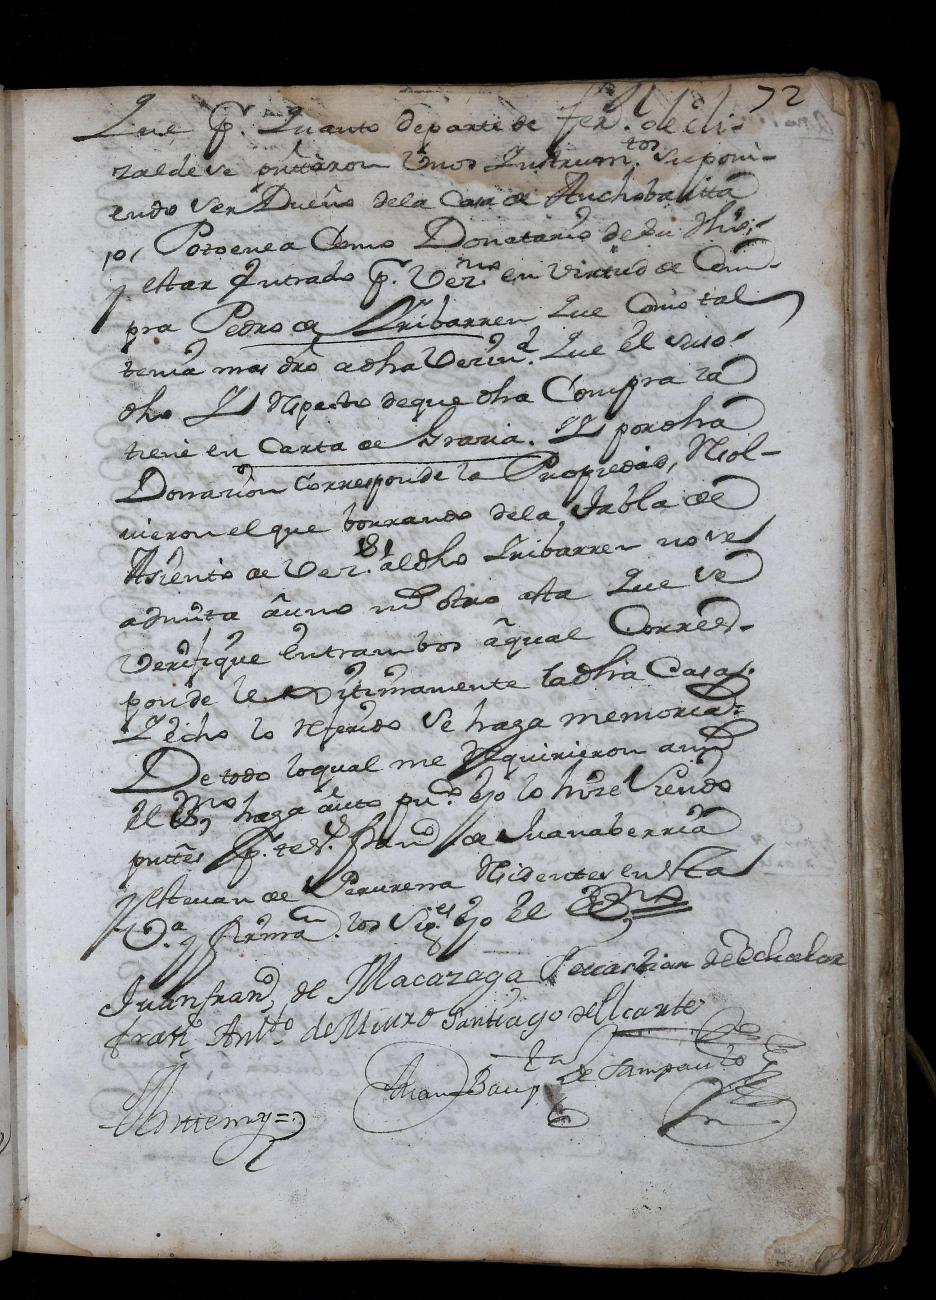 72
Que pr. Quanto de parte de fer.do de eli-
zalde se pnttaron Unos Instrum.tos suponi-
endo ser Dueño dela Casa de Anchobaxitta
Potoenea Como Donatario de su Thio,
y estar Entrado pr. Vez.no en virtud de Com-
pra Pedro de Yribarren que como tal
tenia mas dro a dha Vezin.d Que el suso
dho Y Respecto de que dha Compra la
tiene en Carta de Grazia. Y por dha
Donazion Corresponde la Propiedad, Resol-
vieron el que borrando dela Tabla de
Asiento de Vez.s al dho Yribarren no se
admita a uno ni otro asta Que se
Verifique Entrambos a qual Corres-
ponde lexitimamente la dha Casa.
Y echo lo Referido se haga memoria=
De todo lo qual me Requirieron a mi
el Ess.no haga auto pu.co e yo lo hize Siendo
pnttes Pr. tes.s fran.co de Juanaberria
y estevan de Perurena Residentes en Esta
V.a y firmaron. los Sig.es e yo el Ess.no
Juan fran.co de Macazaga Sevastian de Echalar
frati Ant.to de Miura Santiago de Ucarte
Antte my=
Juan Baup.ta de Sampaulo